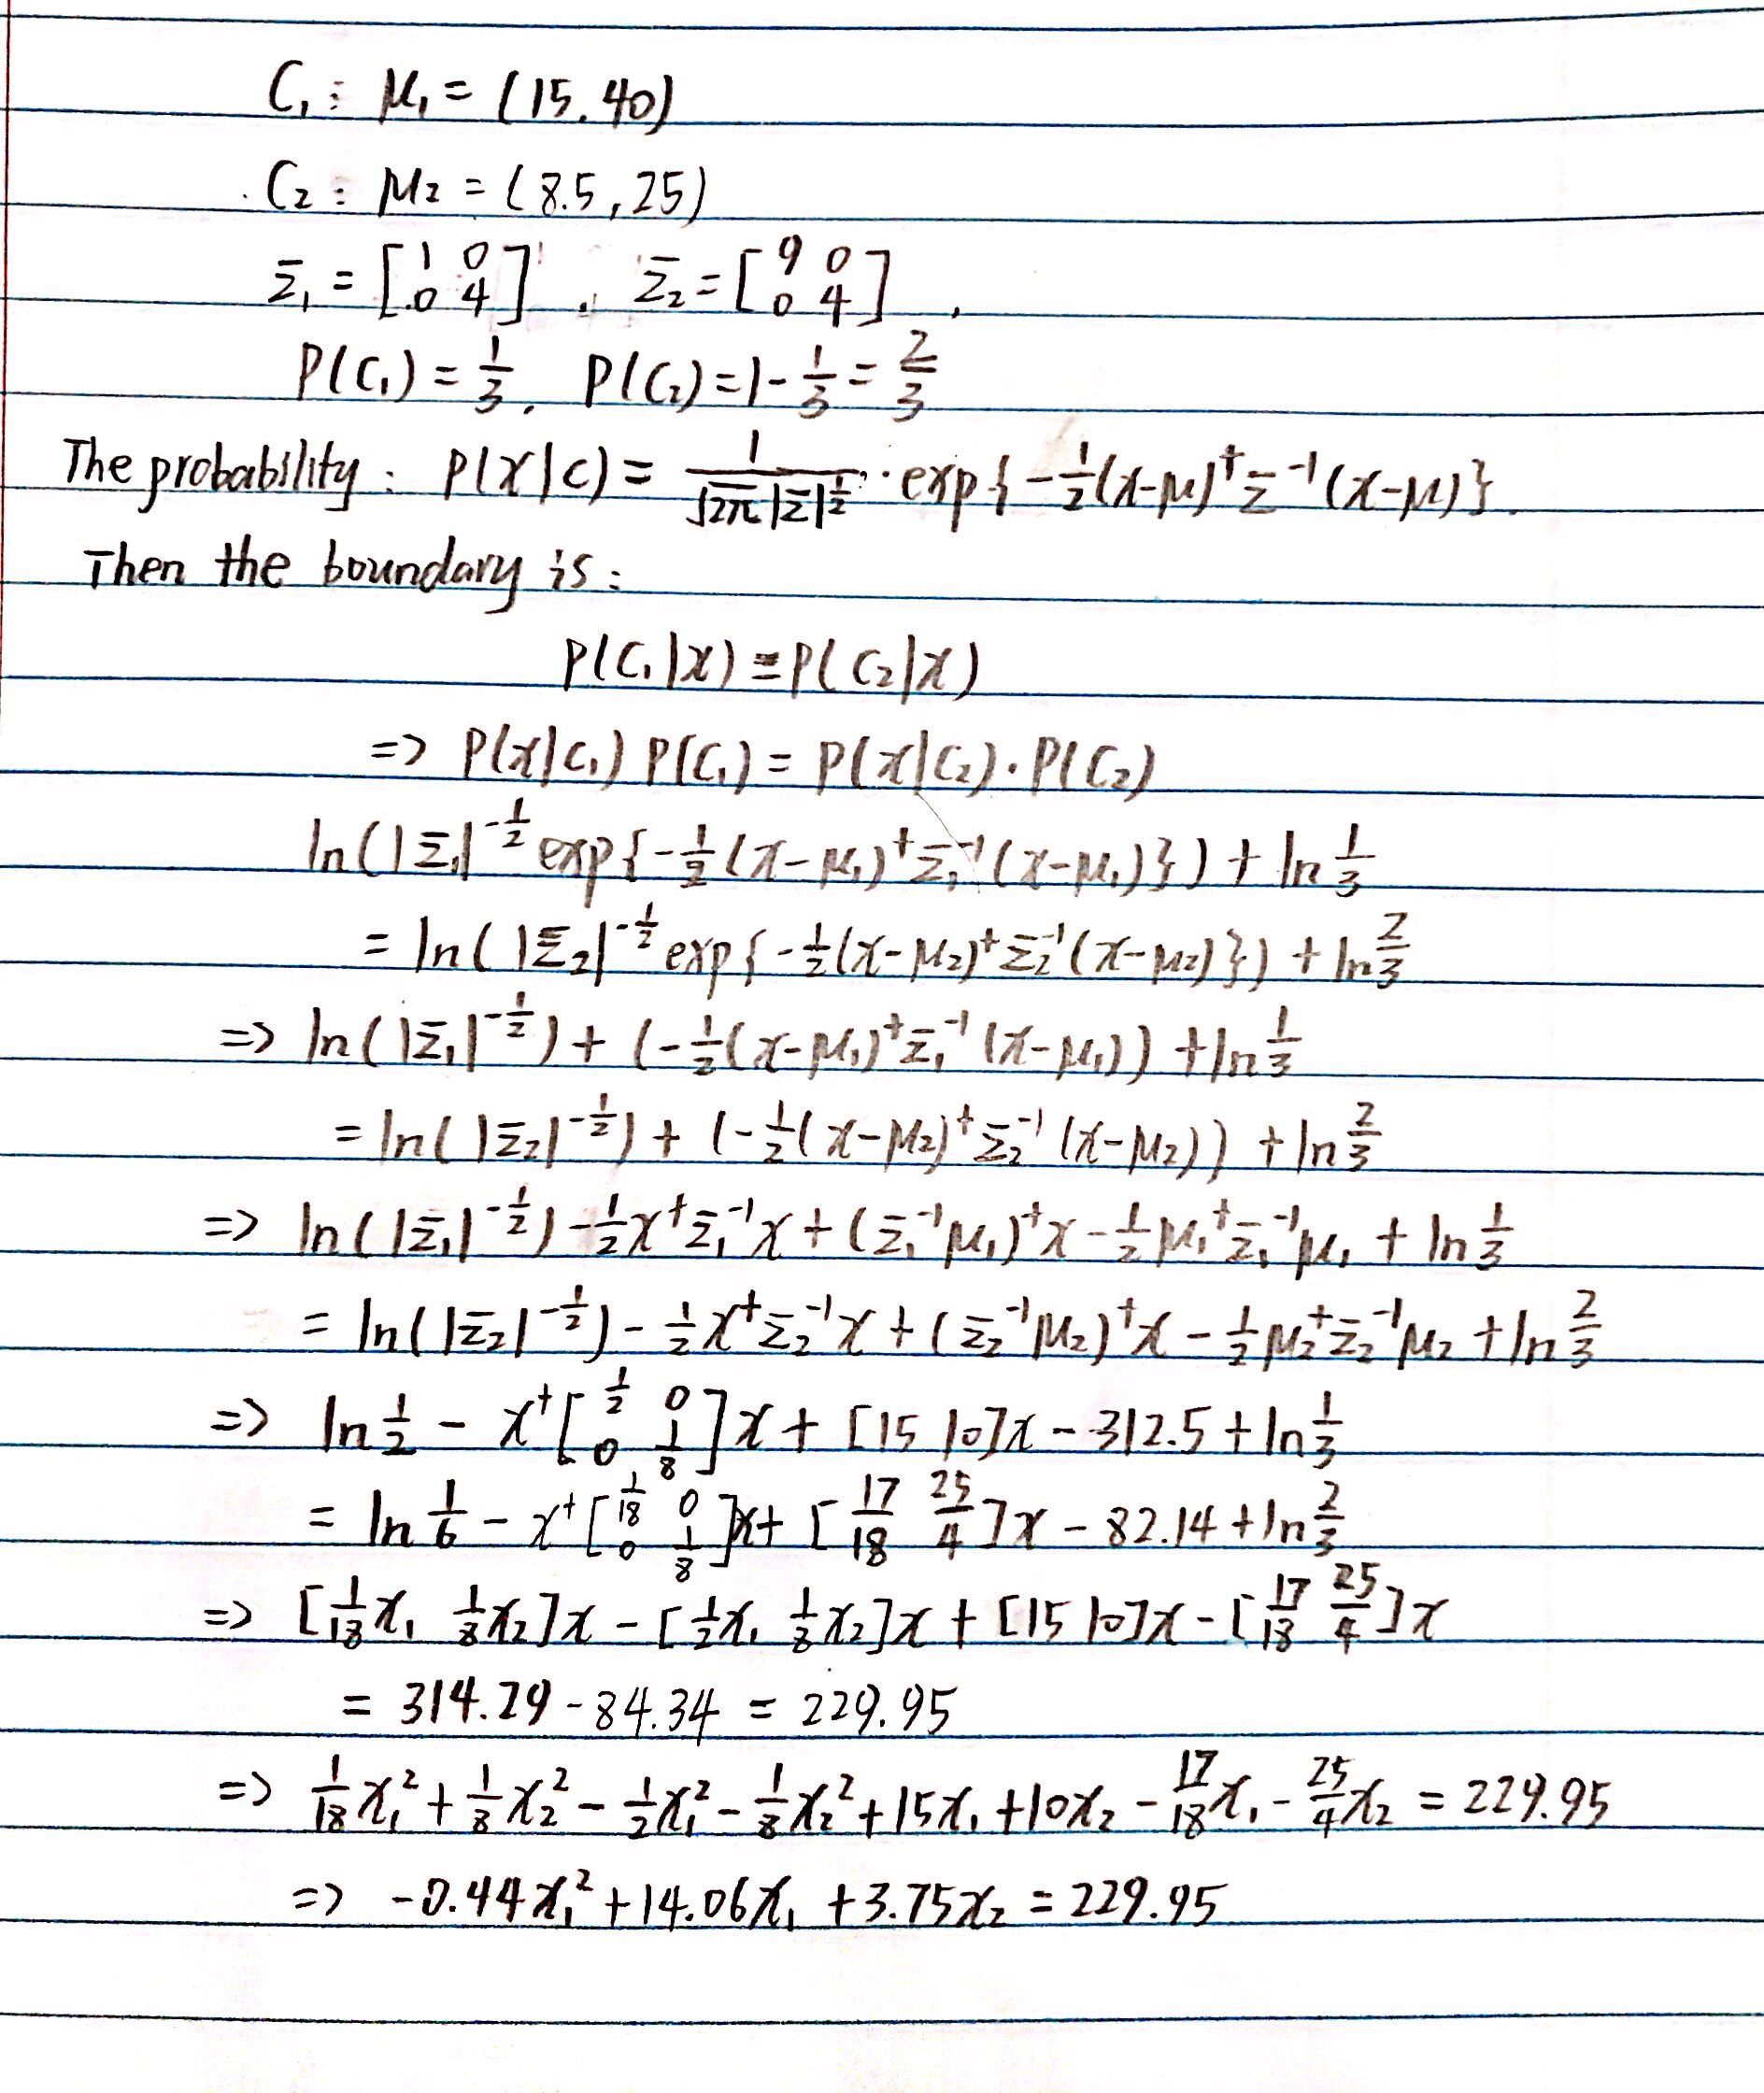 C₁ : μ₁ = (15, 40)
C₂ : μ₂ = (8.5, 25)
Σ₁ = [1 0; 0 4], Σ₂ = [9 0; 0 4],
P(C₁) = 1/3, P(C₂) = 1 - 1/3 = 2/3
The probability: P(x|C) = 1/(√2π |Σ|^(1/2)) · exp{-1/2(x-μ)ᵗΣ⁻¹(x-μ)}.
Then the boundary is:
P(C₁|x) = P(C₂|x)
=> P(x|C₁) P(C₁) = P(x|C₂)·P(C₂)
ln(|Σ₁|^(-1/2) exp{-1/2(x-μ₁)ᵗΣ₁⁻¹(x-μ₁)}) + ln 1/3
= ln(|Σ₂|^(-1/2) exp{-1/2(x-μ₂)ᵗΣ₂⁻¹(x-μ₂)}) + ln 2/3
=> ln(|Σ₁|^(-1/2)) + (-1/2(x-μ₁)ᵗΣ₁⁻¹(x-μ₁)) + ln 1/3
= ln(|Σ₂|^(-1/2)) + (-1/2(x-μ₂)ᵗΣ₂⁻¹(x-μ₂)) + ln 2/3
=> ln(|Σ₁|^(-1/2)) - 1/2xᵗΣ₁⁻¹x + (Σ₁⁻¹μ₁)ᵗx - 1/2μ₁ᵗΣ₁⁻¹μ₁ + ln 1/3
= ln(|Σ₂|^(-1/2)) - 1/2xᵗΣ₂⁻¹x + (Σ₂⁻¹μ₂)ᵗx - 1/2μ₂ᵗΣ₂⁻¹μ₂ + ln 2/3
=> ln 1/2 - xᵗ[1/2 0; 0 1/8]x + [15 10]x - 312.5 + ln 1/3
= ln 1/6 - xᵗ[1/18 0; 0 1/8]x + [17/18 25/4]x - 82.14 + ln 2/3
=> [1/18x₁ 1/8x₂]x - [1/2x₁ 1/8x₂]x + [15 10]x - [17/18 25/4]x
= 314.29 - 84.34 = 229.95
=> 1/18x₁² + 1/8x₂² - 1/2x₁² - 1/8x₂² + 15x₁ + 10x₂ - 17/18x₁ - 25/4x₂ = 229.95
=> -0.44x₁² + 14.06x₁ + 3.75x₂ = 229.95